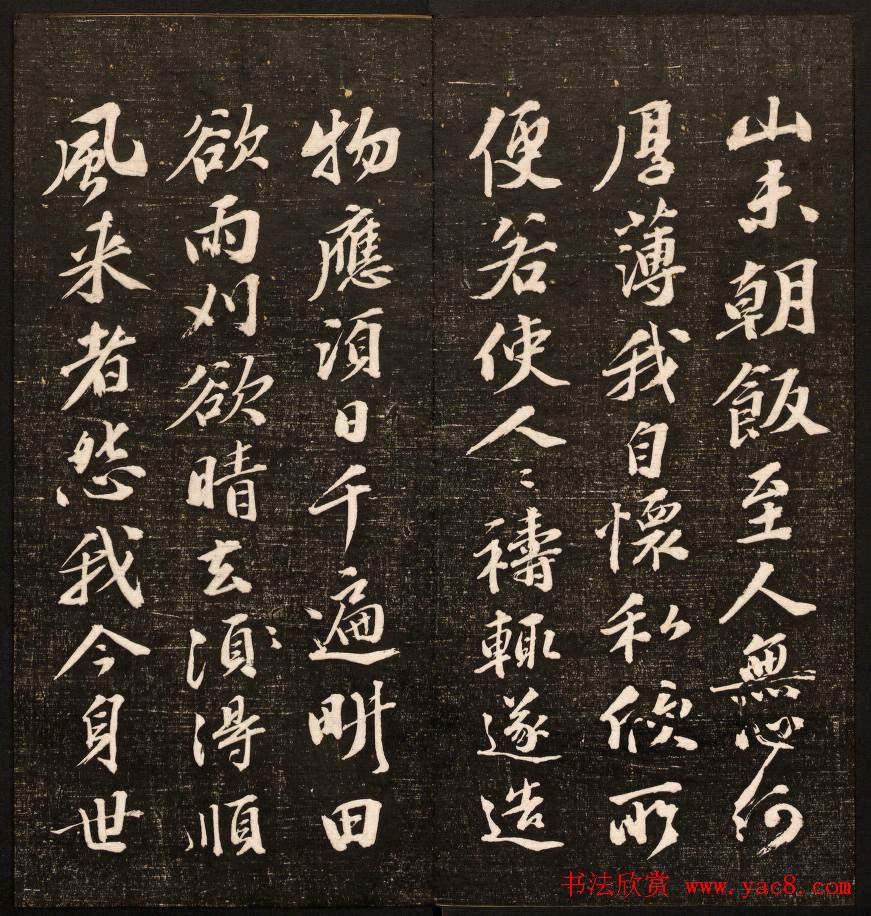 山未朝飯至人無心何
厚薄我自懷私所
便若使人〻禱輒遂造
物應須日千遍耕田
欲雨刈欲晴去須得順
風来者怨我今身世
书法欣赏 www.yac8.com